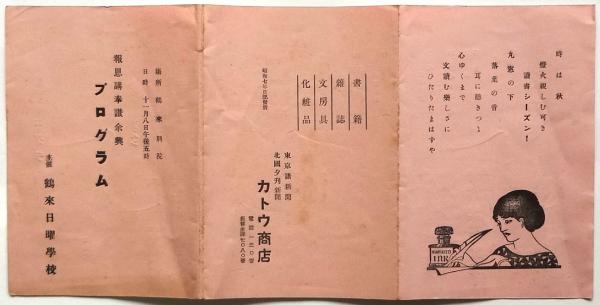 時は秋
燈火親しむ可き
讀書シーズン!
丸窓の下
落葉の音
耳に聽きつゝ
心ゆくまで
文讀む樂しさに
ひたりたまはずや
INK
書籍
雜誌
文房具
化粧品
東京讀新聞
北國夕刊新聞
カトウ商店
電話一三〇番
報恩講奉讃余興
プログラム
日時 十一月八日午後五時
場所 鶴來別院
主催 鶴來日曜學校